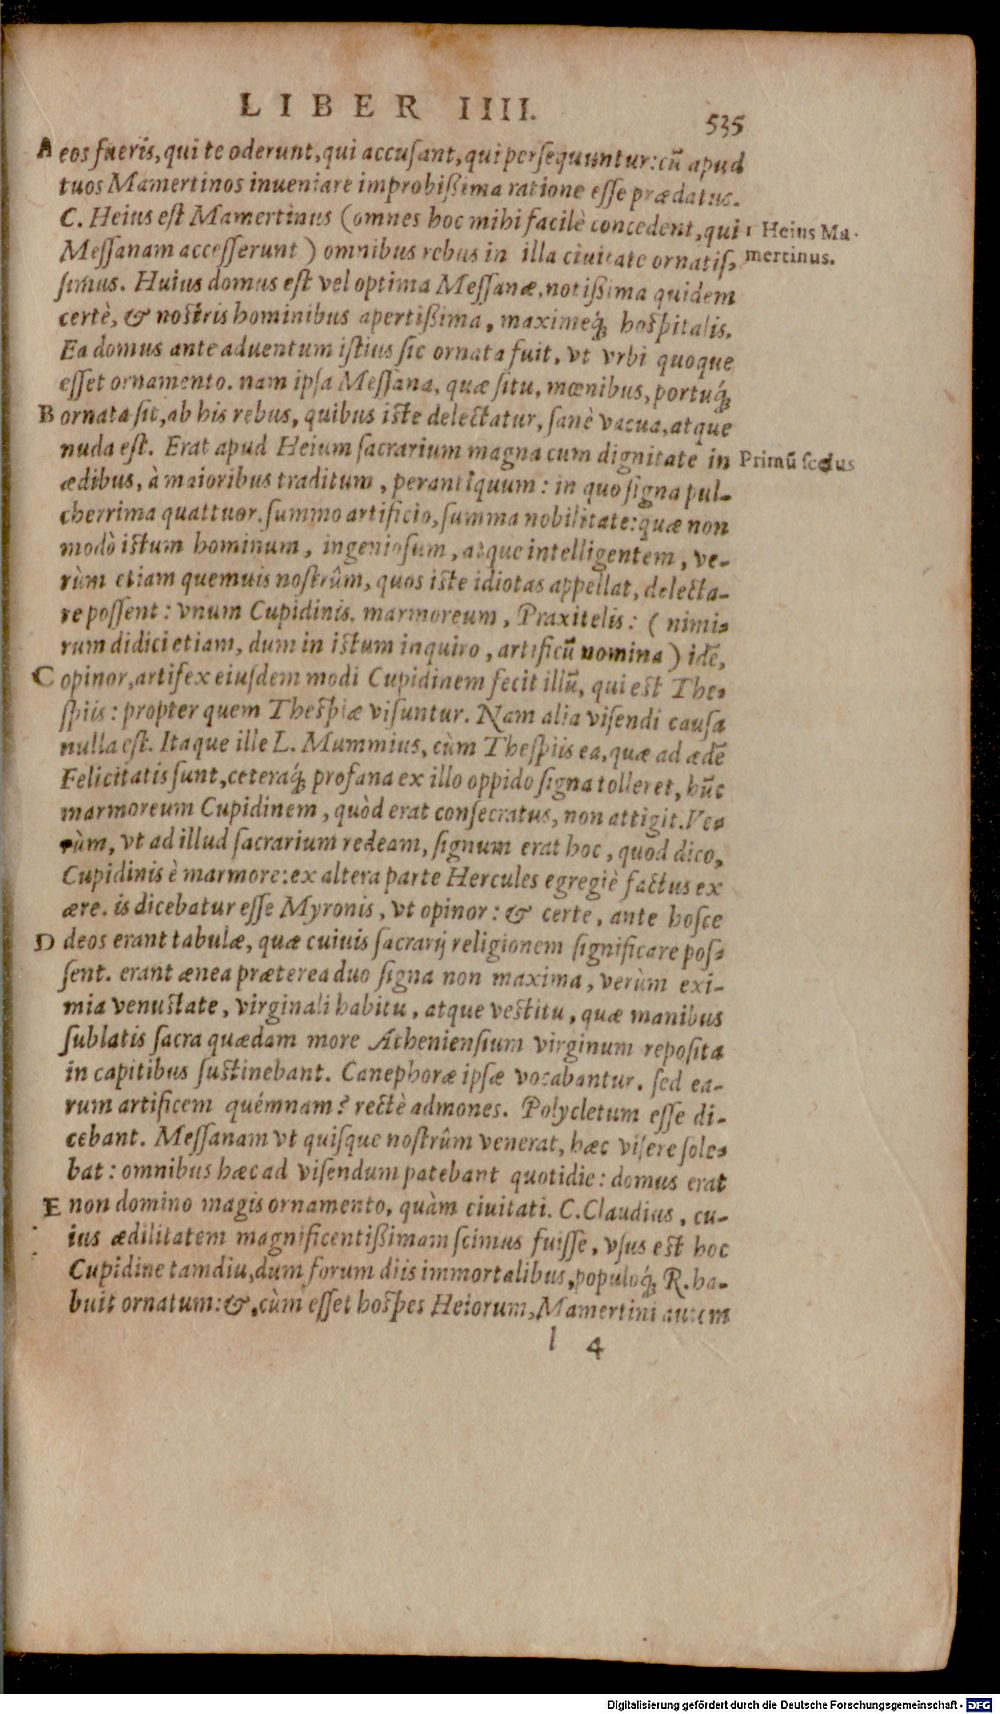 LIBER IIII.
535
A eos fueris, qui te oderunt, qui accusant, qui persequuntur: cũ apud
tuos Mamertinos inueniare improbißima ratione esse prædatus.
C. Heius est Mamertinus (omnes hoc mihi facilè concedent, qui
1 Heius Ma-
Messanam accesserunt) omnibus rebus in illa ciuitate ornatis-
mertinus.
simus. Huius domus est vel optima Messanæ, notißima quidem
certè, & nostris hominibus apertißima, maximeq́; hospitalis.
Ea domus ante aduentum istius sic ornata fuit, vt vrbi quoque
esset ornamento. nam ipsa Messana, quæ situ, mœnibus, portuq́;
B ornata sit, ab his rebus, quibus iste delectatur, sanè vacua, atque
nuda est. Erat apud Heium sacrarium magna cum dignitate in
Primũ scelus
ædibus, à maioribus traditum, perantiquum: in quo signa pul-
cherrima quattuor. summo artificio, summa nobilitate: quæ non
modò istum hominum, ingeniosum, atque intelligentem, ve-
rùm etiam quemuis nostrûm, quos iste idiotas appellat, delecta-
re possent: vnum Cupidinis, marmoreum, Praxitelis: (nimi-
rum didici etiam, dum in istum inquiro, artificũ nomina) idẽ,
C opinor, artifex eiusdem modi Cupidinem fecit illũ, qui est The-
spiis: propter quem Thespiæ visuntur. Nam alia visendi causa
nulla est. Itaque ille L. Mummius, cùm Thespiis ea, quæ ad ædẽ
Felicitatis sunt, ceteraq́; profana ex illo oppido signa tolleret, hũc
marmoreum Cupidinem, quòd erat consecratus, non attigit. Ve-
rùm, vt ad illud sacrarium redeam, signum erat hoc, quod dico,
Cupidinis è marmore: ex altera parte Hercules egregiè factus ex
ære. is dicebatur esse Myronis, vt opinor: & certe, ante hosce
D deos erant tabulæ, quæ cuiuis sacrarij religionem significare pos-
sent. erant ænea præterea duo signa non maxima, verùm exi-
mia venustate, virginali habitu, atque vestitu, quæ manibus
sublatis sacra quædam more Atheniensium virginum reposita
in capitibus sustinebant. Canephoræ ipsæ vocabantur. sed ea-
rum artificem quémnam? rectè admones. Polycletum esse di-
cebant. Messanam vt quisque nostrûm venerat, hæc visere sole-
bat: omnibus hæc ad visendum patebant quotidie: domus erat
E non domino magis ornamento, quàm ciuitati. C. Claudius, cu-
ius ædilitatem magnificentißimam scimus fuisse, vsus est hoc
Cupidine tamdiu, dum forum diis immortalibus, populoq́; R. ha-
buit ornatum: &, cùm esset hospes Heiorum, Mamertini autem
l 4
Digitalisierung gefördert durch die Deutsche Forschungsgemeinschaft - DFG